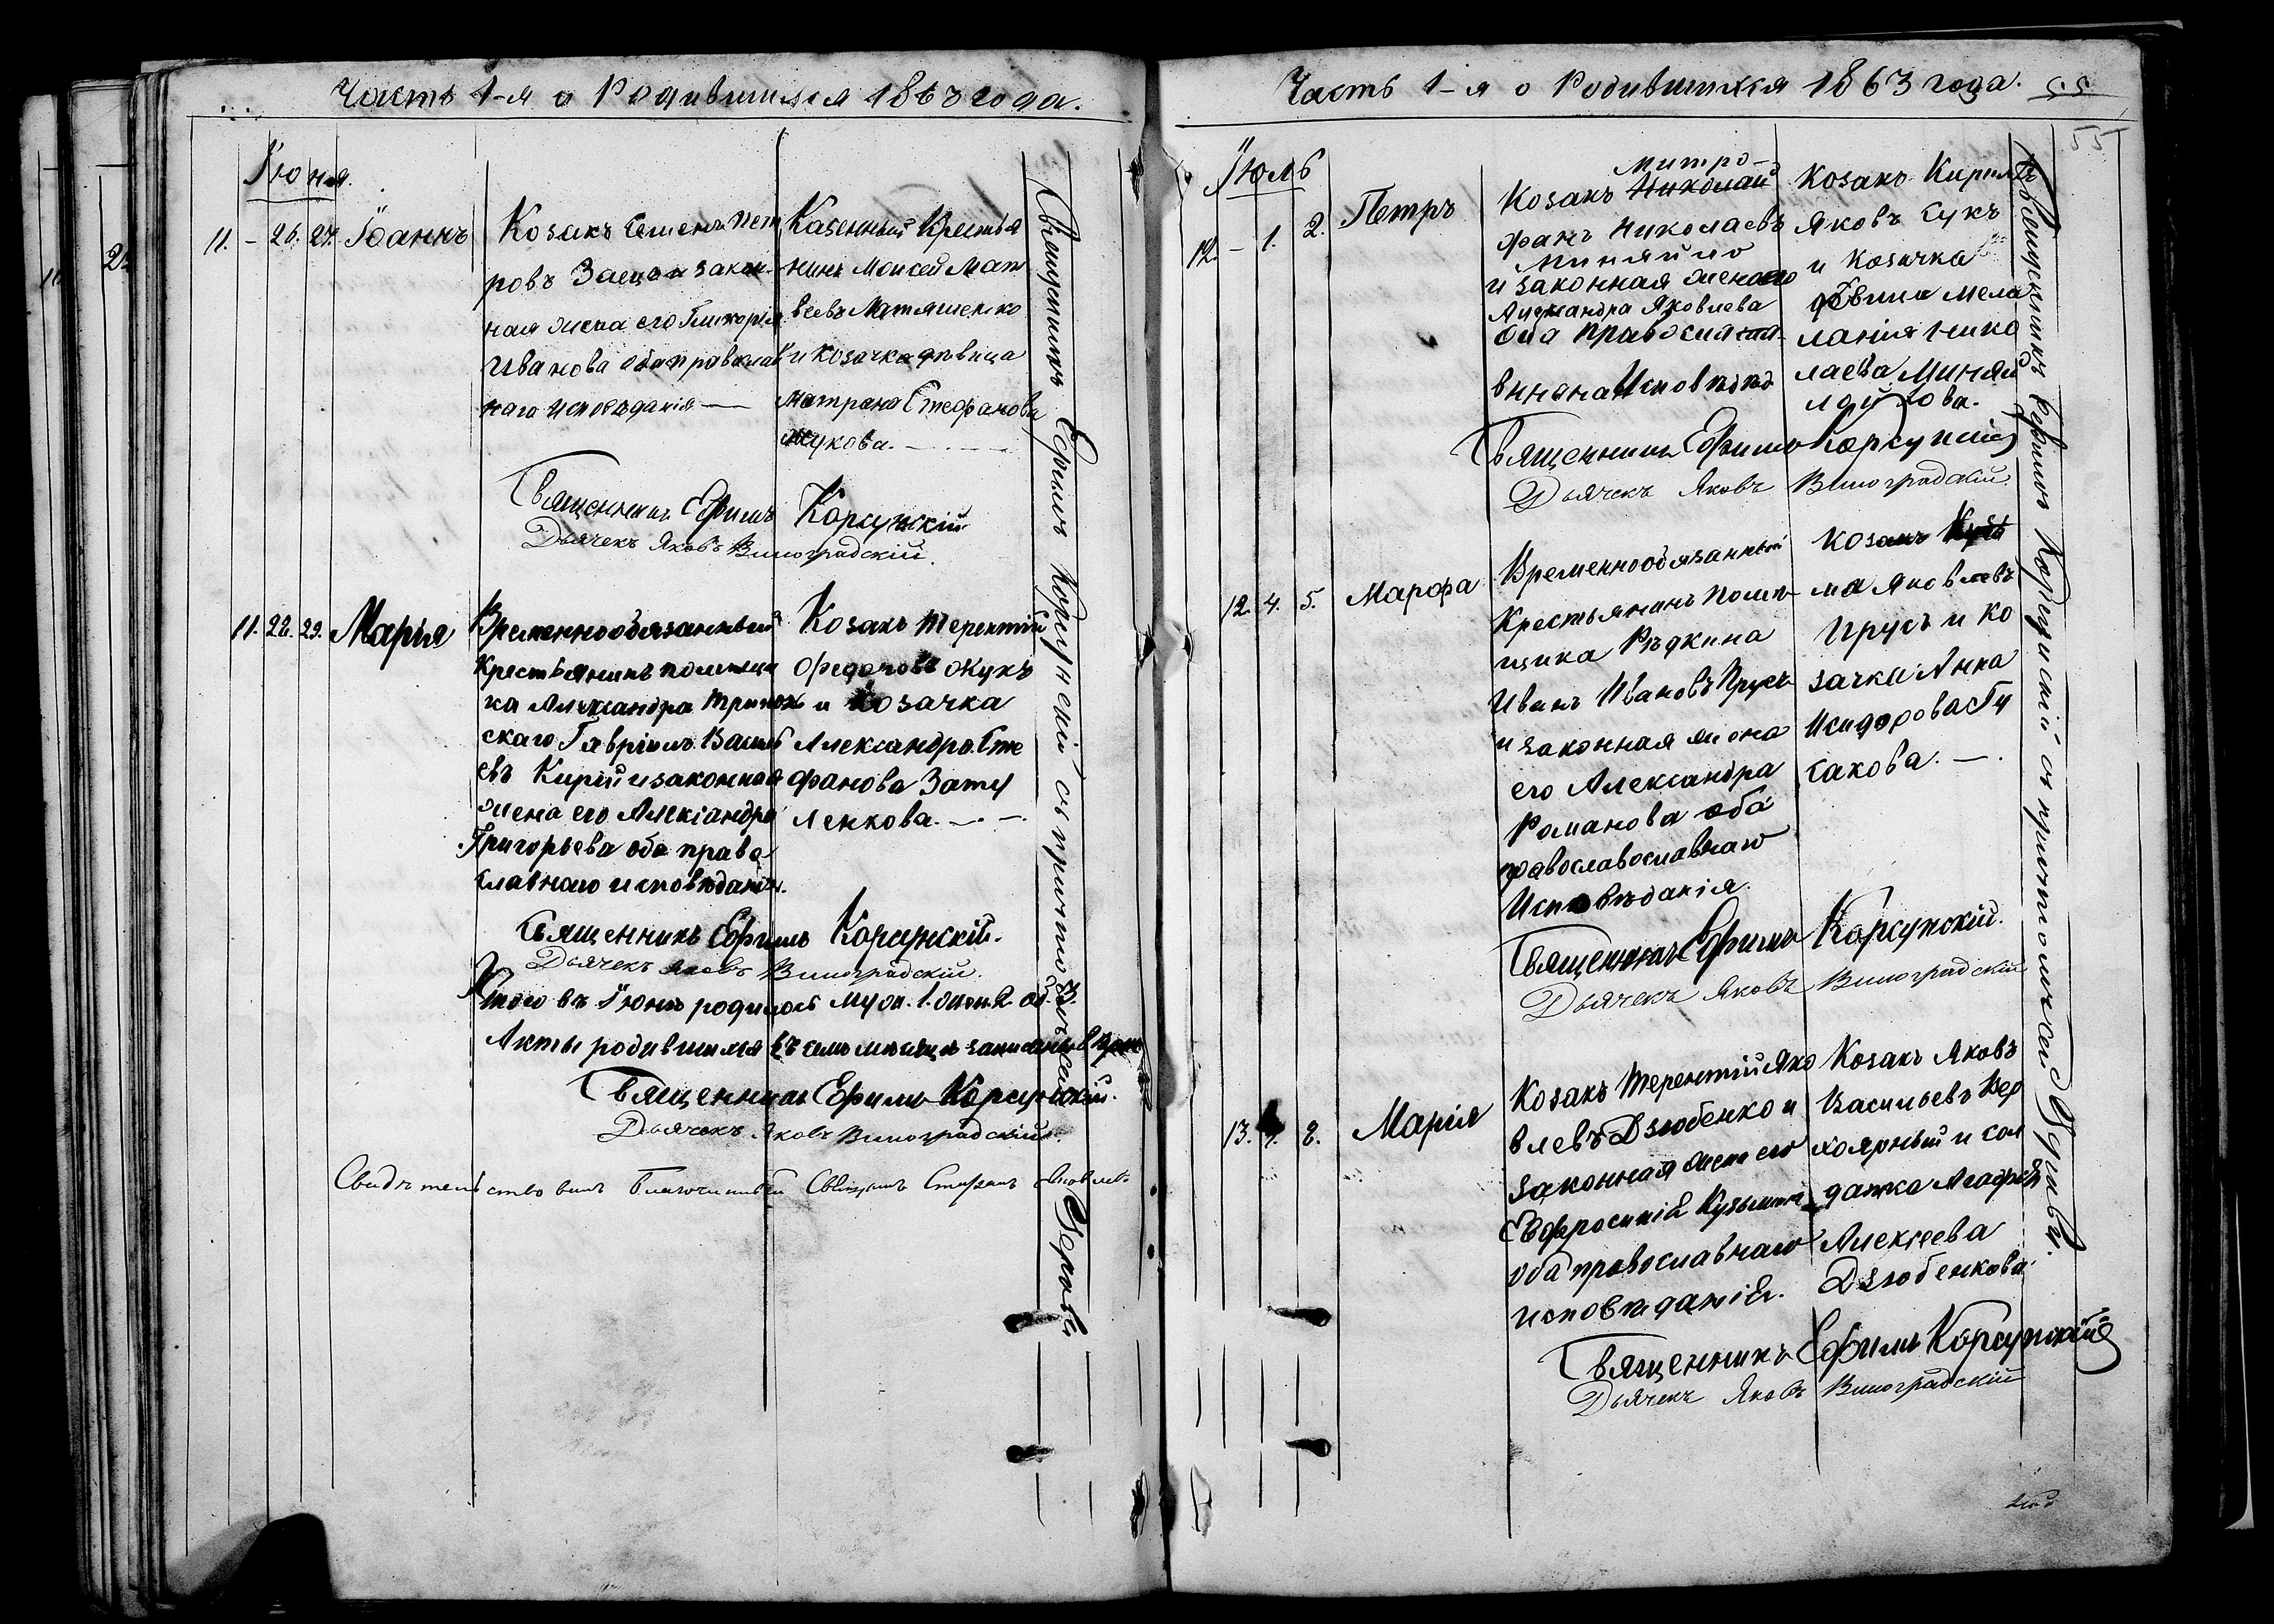 Часть 1-я о Родившихся 1863 года.
Іюня.
11. - 26. 27. Іоаннъ
Козакъ Семенъ Пет
ровъ Заецъ и закон-
ная жена его Гликерія
Иванова оба православ
наго исповѣданія —
Казенный Крестья
нинъ Моисей Мат
веевъ Матяшенко
и Козачка дѣвица
Матрона Стефанова
Жукова. —
Священникъ Ефимъ Корсунскій
Дьячекъ Яковъ Виноградскій.
11. 28. 29. Марія
Временнообязанный
Крестьянинъ помѣщи
ка Александра
скаго Гавріилъ
евъ Кирій и законная
жена его Александра
Григорьева оба право
славнаго исповѣданія.
Козакъ Терентій
Федоровъ Жукъ
и Козачка
Александра Сте
фанова Зату
ленкова. —
Священникъ Ефимъ Корсунскій.
Дьячекъ Яковъ Виноградскій.
Итого въ Іюнѣ родилось муж. 1. жен. 2. об. 3.
Акты родившихся въ семъ мѣсяцѣ записаны
Священникъ Ефимъ Корсунскій.
Дьячекъ Яковъ Виноградскій.
Благочинный Стефанъ
Священникъ Ефимъ Корсунскій съ причтомъ
Часть 1-я о Родившихся 1863 года.
55
55
Іюль
12. - 1. 2. Петръ
Митро-
Козакъ Николай
фанъ Николаевъ
Миняйло
и законная жена его
Александра Яковлева
оба православ
Козакъ Кирилъ
Яковъ Сукъ
и Козачка
дѣвица Мела
нія Нико
лаева Миняй
лова.
Священникъ Ефимъ Корсунскій
Дьячекъ Яковъ Виноградскій.
12. 4. 5. Марфа
Временнообязанный
Крестьянинъ помѣ-
щика Рѣдкина
Иванъ Ивановъ Прусъ
и законная жена
его Александра
Романова оба
православославнаго
Исповѣданія.
Козакъ Кузь
ма Яковлевъ
Прусъ и Ко
зачка Анна
Исидорова Гу
сакова. —
Священникъ Ефимъ Корсунскій.
Дьячекъ Яковъ Виноградскій
13. 8. Марія
Козакъ Терентій Яко
влевъ Дзюбенко и
законная жена его
Евфросинія Кузьмина
оба православнаго
исповѣданія.
Козакъ Яковъ
Васильевъ
и сол
датка Агафія
Алексѣева
Дзюбенкова
Священникъ Ефимъ Корсунскій
Дьячекъ Яковъ Виноградскій
Священникъ Ефимъ Корсунскій съ причтомъ